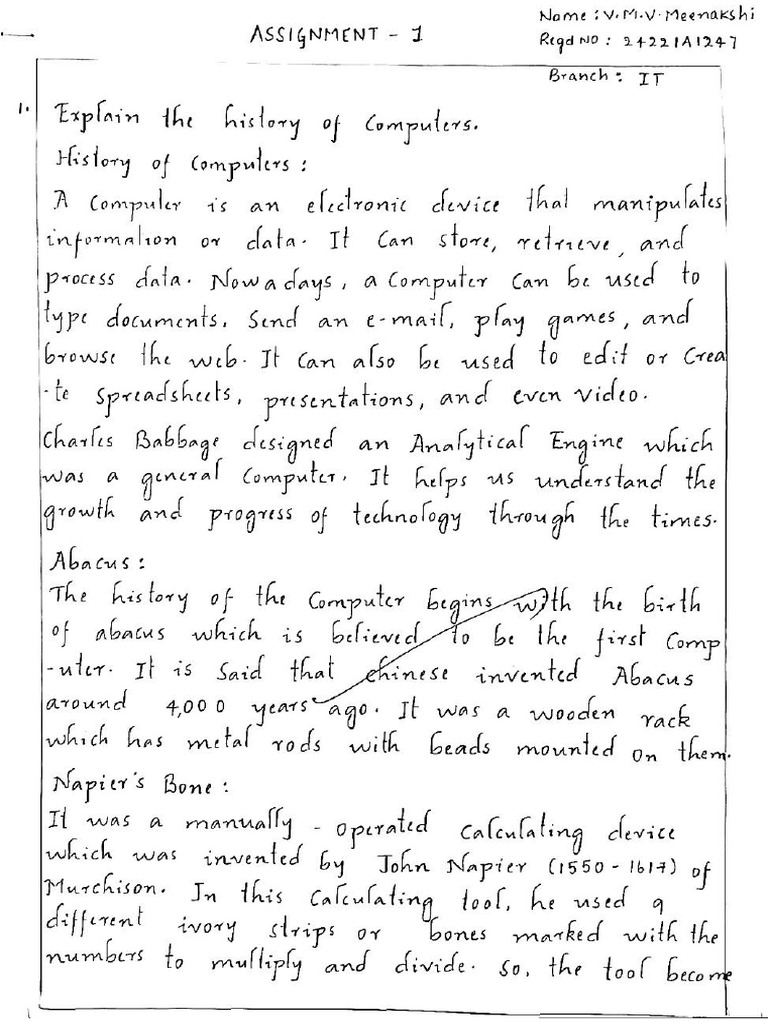 ASSIGNMENT - 1
Name : V.M.V. Meenakshi
Regd NO : 24221A1247
Branch : IT
1. Explain the history of Computers.
History of Computers :
A Computer is an electronic device that manipulates
information or data. It Can store, retrieve, and
process data. Nowadays, a Computer Can be used to
type documents, Send an e-mail, play games, and
browse the web. It Can also be used to edit or Crea
-te Spreadsheets, presentations, and even Video.
Charles Babbage designed an Analytical Engine which
was a general Computer. It helps us understand the
growth and progress of technology through the times.
Abacus :
The history of the Computer begins with the birth
of abacus which is believed to be the first Comp
-uter. It is Said that Chinese invented Abacus
around 4,000 years ago. It was a wooden rack
which has metal rods with beads mounted on them.
Napier's Bone :
It was a manually - operated Calculating device
which was invented by John Napier (1550 - 1617) of
Murchison. In this Calculating tool, he used 9
different ivory strips or bones marked with the
numbers to multiply and divide. So, the tool become